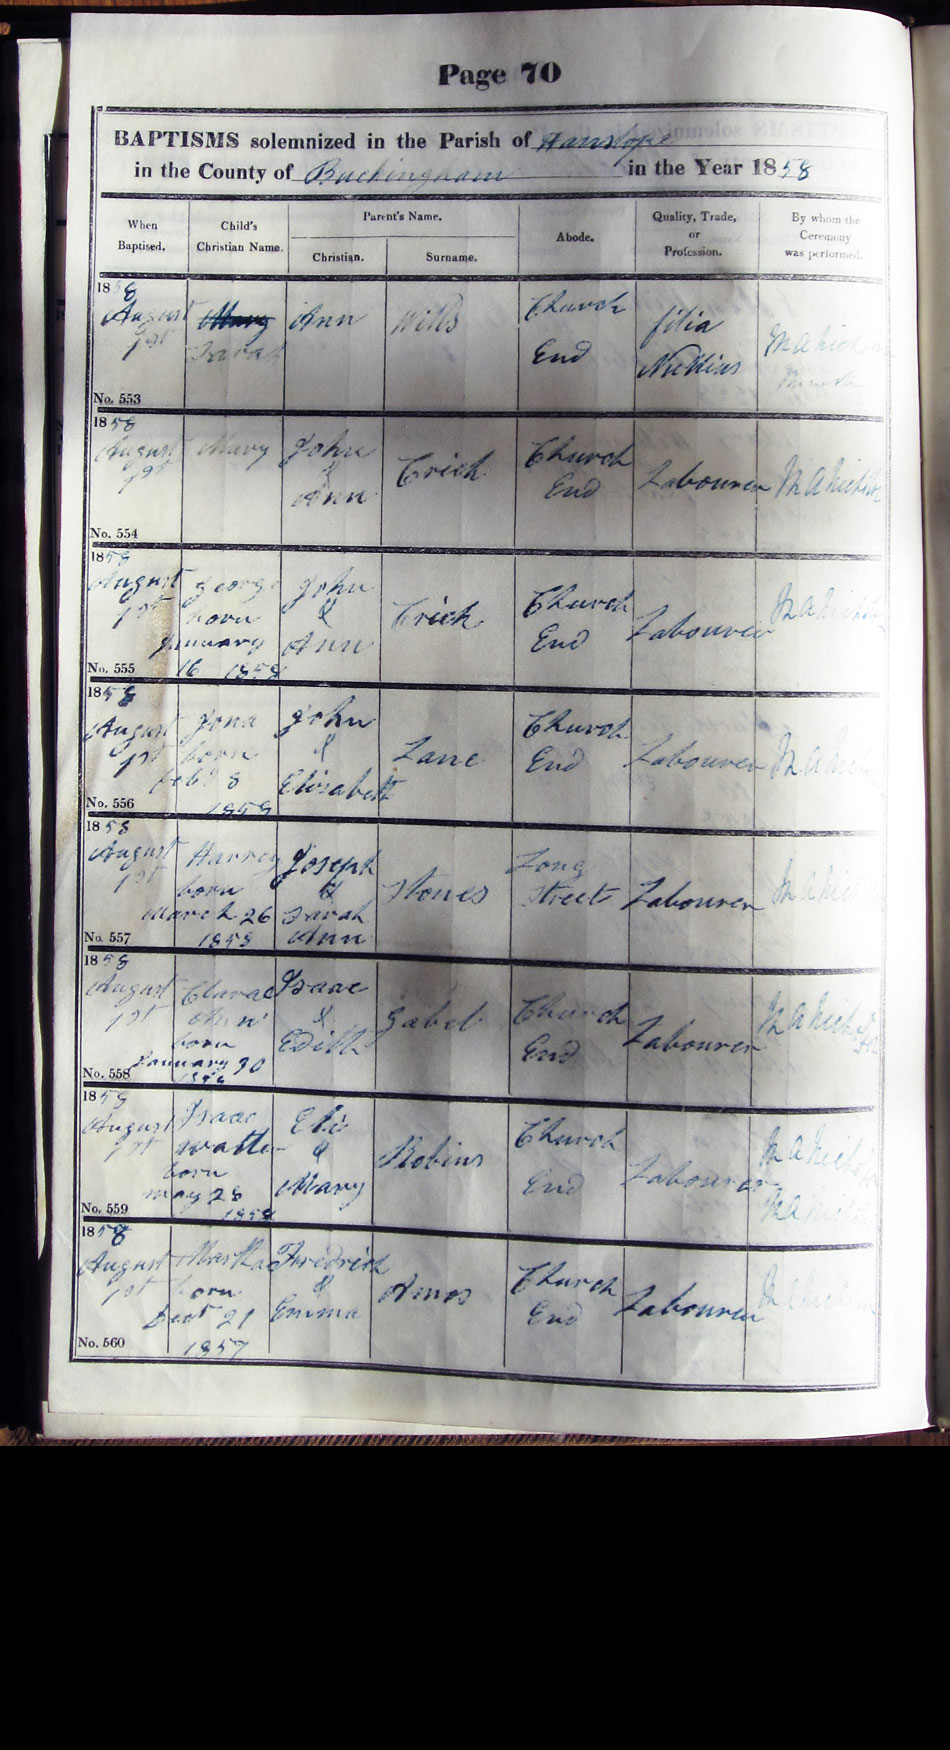 Page 70
BAPTISMS solemnized in the Parish of Hanslope
in the County of Buckingham in the Year 1858
When
Baptised.
Child's
Christian Name.
Parent's Name.
Christian.
Surname.
Abode.
Quality, Trade,
or
Profession.
By whom the
Ceremony
was performed.
1858
August
1st
No. 553
Mary
Sarah
Ann
Wills
Church
End
filia
Nullius
M A
1858
August
1st
No. 554
Mary
John
&
Ann
Crick
Church
End
Labourer
M A
1858
August
1st
No. 555
George
born
January
16 1858
John
&
Ann
Crick
Church
End
Labourer
M A
1858
August
1st
No. 556
born
Feb 8
1858
John
&
Elizabeth
Lane
Church
End
Labourer
M A
1858
August
1st
No. 557
Harvey
born
March 26
1858
Joseph
&
Sarah
Ann
Stones
Long
Street
Labourer
M A
1858
August
1st
No. 558
Clara
Ann
born
January 30
1858
Isaac
&
Edith
Gabel
Church
End
Labourer
M A
1858
August
1st
No. 559
Isaac
Walter
born
May 28
1858
Eli
&
Mary
Robins
Church
End
Labourer
M A
M A
1858
August
1st
No. 560
Martha
born
21
1857
Fredrick
&
Emma
Amos
Church
End
Labourer
M A